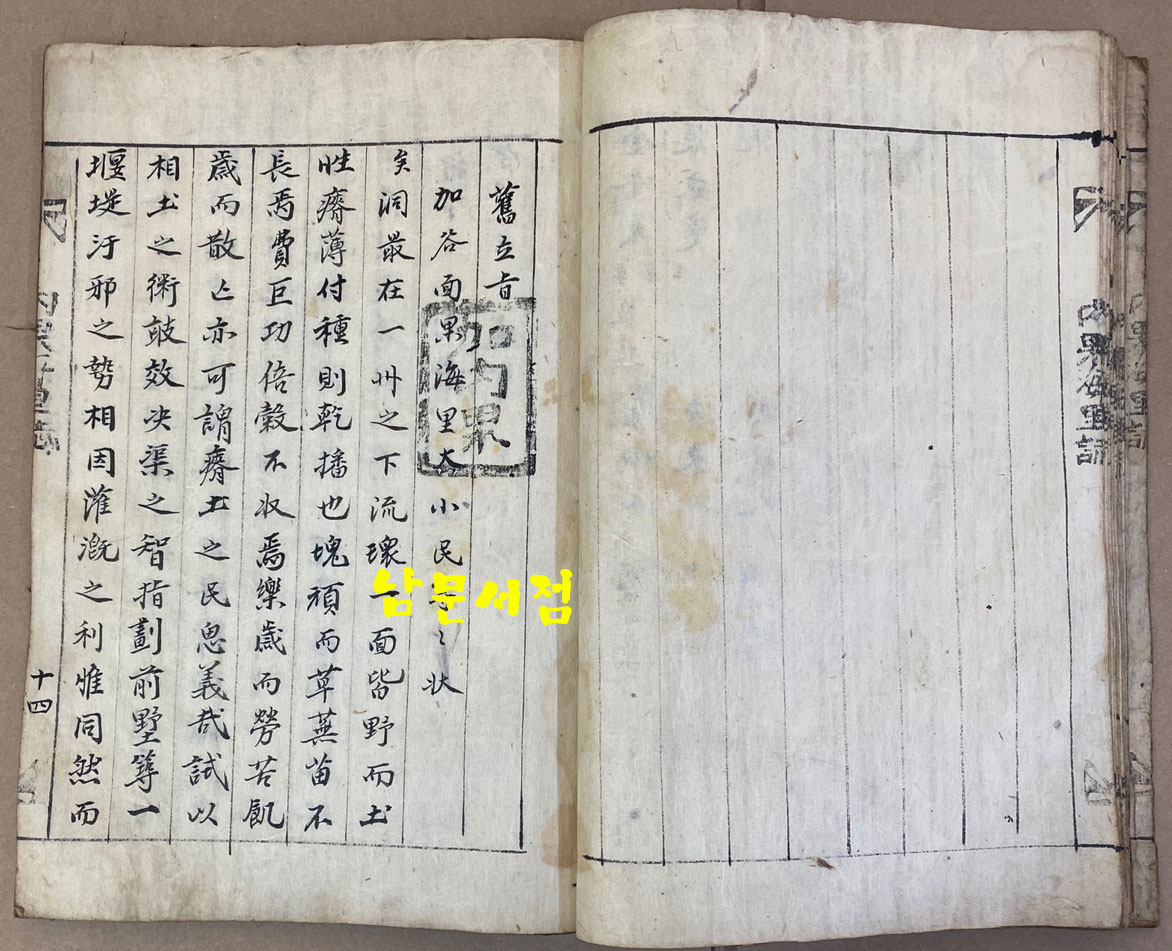 舊立旨
加谷面果海里大小民状
矣洞最在一州之下流環一面皆野而土
性瘠薄付種則乾播也塊頑而草蕪苗不
長焉費巨功倍穀不収焉樂歳而勞苦飢
歳而散亡亦可謂瘠土之民思義哉試以
相土之術鼓效决渠之智指劃前墅筭一
堰堤汙邪之勢相因灌漑之利惟同然而
十四
加內果
남문서점